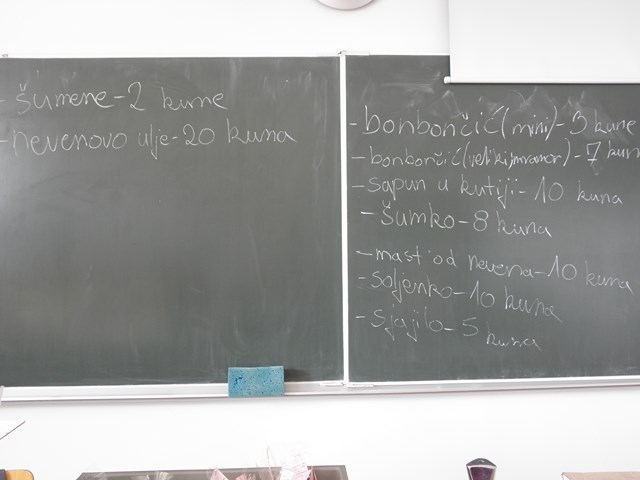 - šumene - 2 kune
- nevenovo ulje - 20 kuna
- bonbončić (mini) - 3 kune
- bonbončić (veliki, mramor) - 7 kuna
- sapun u kutiji - 10 kuna
- šumko - 8 kuna
- mast od nevena - 10 kuna
- soljenko - 10 kuna
- sjajilo - 5 kuna